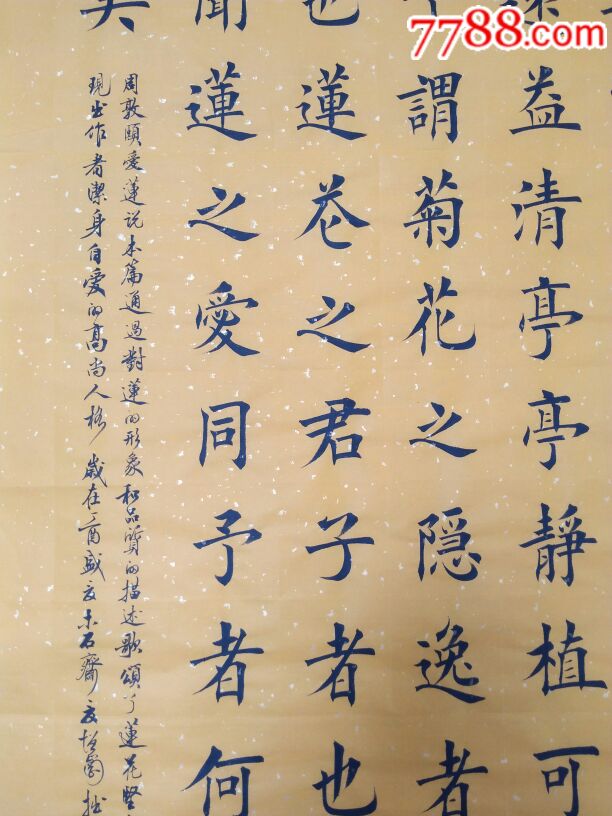 益清亭亭靜植可
謂菊花之隱逸者
也蓮花之君子者也
聞蓮之愛同予者何
矣
周敦頤愛蓮说本篇通過對蓮的形象和品質的描述歌頌了蓮花堅
現出作者潔身自愛的高尚人格歲在丁酉盛夏木石齋拙
7788.com